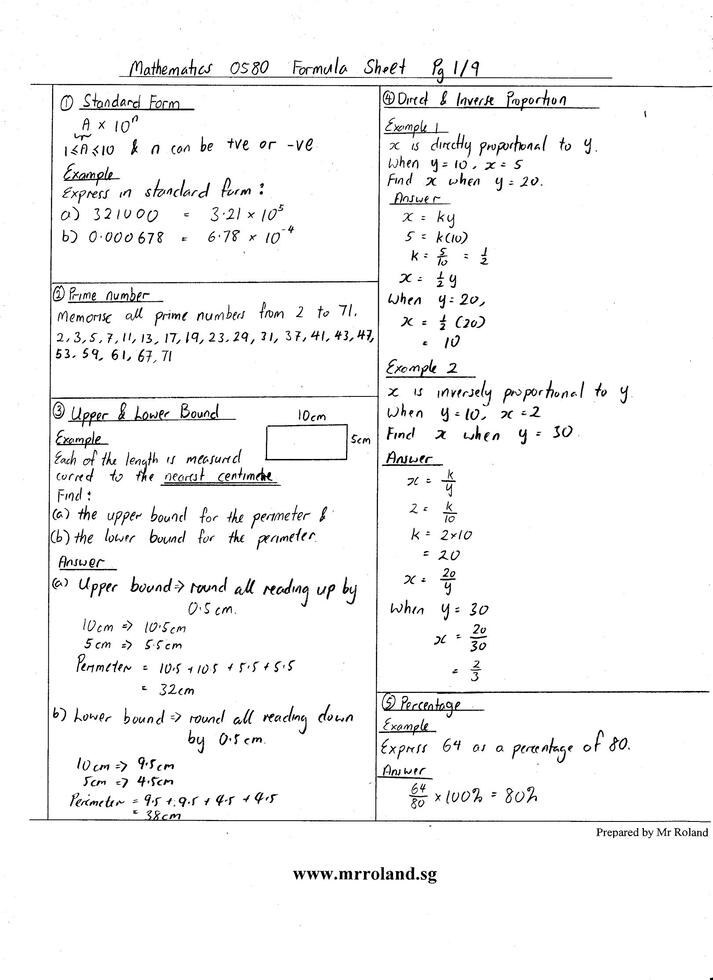 Mathematics 0580 Formula Sheet Pg 1/9
① Standard Form
A × 10ⁿ
1≤A≤10 & n can be +ve or -ve
Example
Express in standard form:
a) 321000 = 3.21 × 10⁵
b) 0.000678 = 6.78 × 10⁻⁴
② Prime number
Memorise all prime numbers from 2 to 71.
2, 3, 5, 7, 11, 13, 17, 19, 23, 29, 31, 37, 41, 43, 47,
53, 59, 61, 67, 71
③ Upper & Lower Bound
10cm
5cm
Example
Each of the length is measured
correct to the nearest centimetre
Find:
(a) the upper bound for the perimeter &
(b) the lower bound for the perimeter.
Answer
(a) Upper bound => round all reading up by
0.5cm.
10cm => 10.5cm
5cm => 5.5cm
Perimeter = 10.5 + 10.5 + 5.5 + 5.5
= 32cm
b) Lower bound => round all reading down
by 0.5cm.
10cm => 9.5cm
5cm => 4.5cm
Perimeter = 9.5 + 9.5 + 4.5 + 4.5
= 38cm
④ Direct & Inverse Proportion
Example 1
x is directly proportional to y.
When y = 10, x = 5
Find x when y = 20.
Answer
x = ky
5 = k(10)
k = 5/10 = 1/2
x = 1/2 y
When y = 20,
x = 1/2 (20)
= 10
Example 2
x is inversely proportional to y.
When y = 10, x = 2
Find x when y = 30.
Answer
x = k/y
2 = k/10
k = 2×10
= 20
x = 20/y
When y = 30
x = 20/30
= 2/3
⑤ Percentage
Example
Express 64 as a percentage of 80.
Answer
64/80 × 100% = 80%
Prepared by Mr Roland
www.mrroland.sg